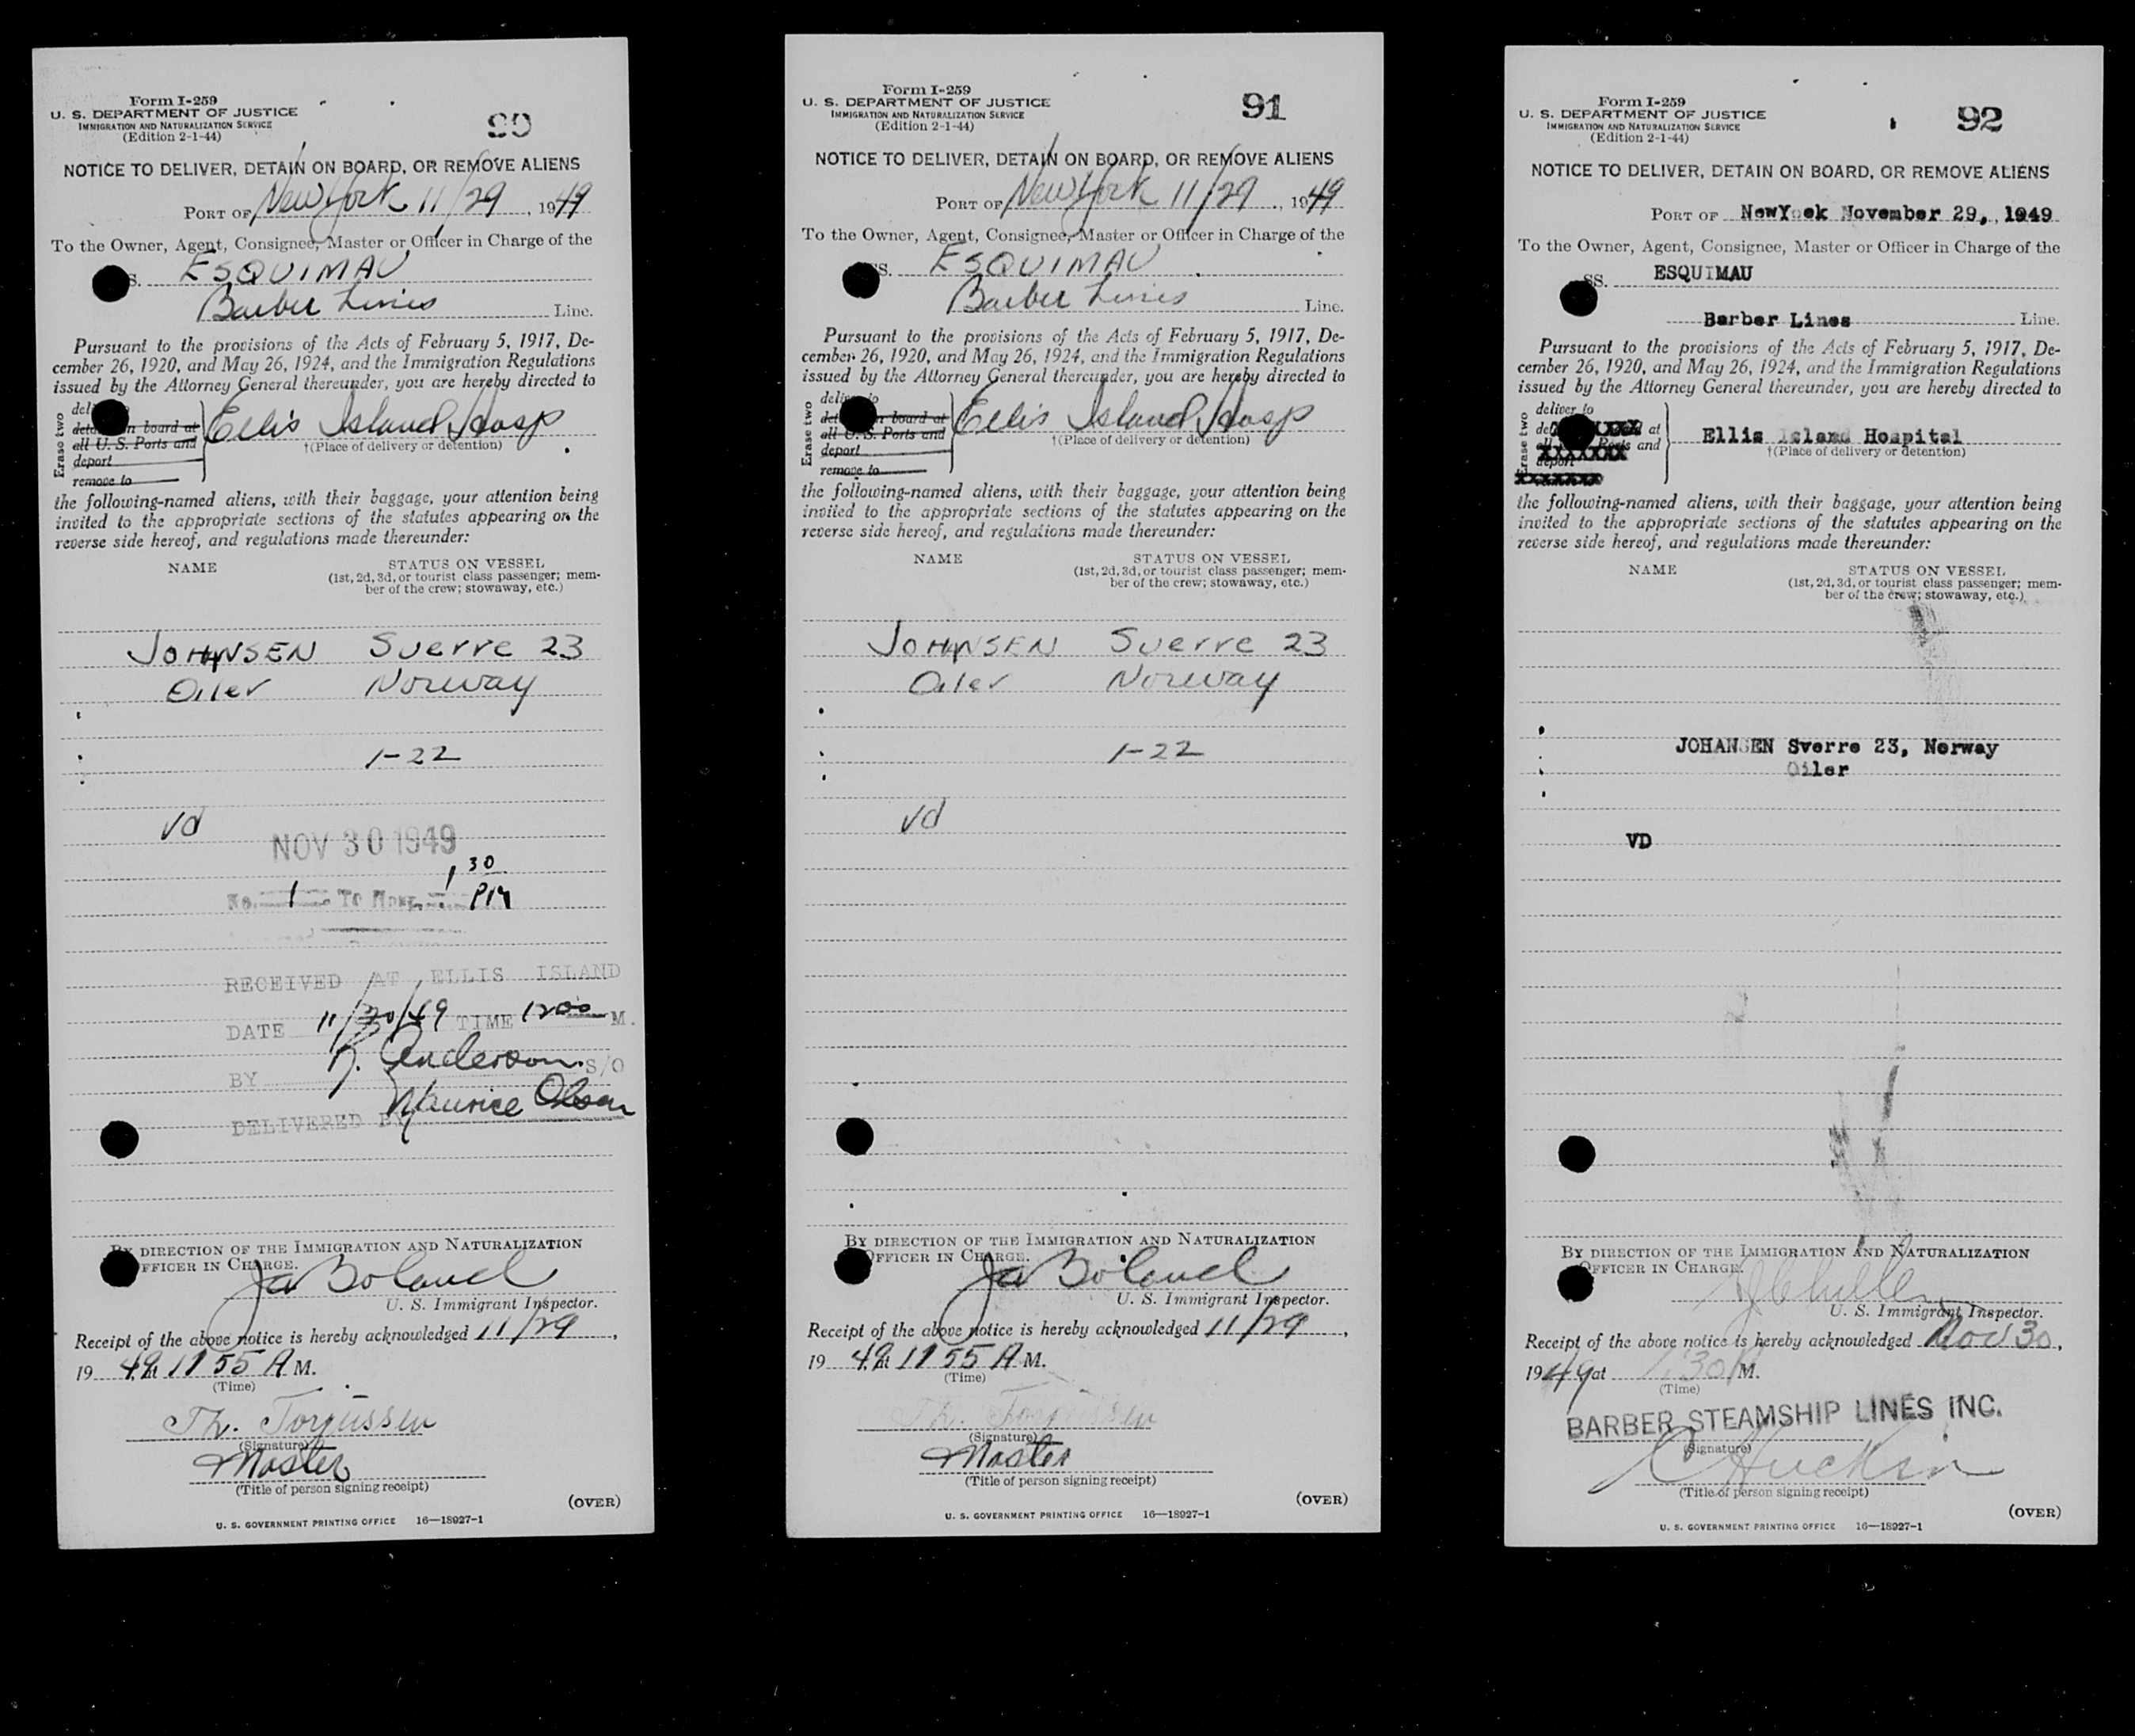 Form I-259
U. S. DEPARTMENT OF JUSTICE
IMMIGRATION AND NATURALIZATION SERVICE
(Edition 2-1-44)
90
NOTICE TO DELIVER, DETAIN ON BOARD, OR REMOVE ALIENS
PORT OF New York 11/29, 1949
To the Owner, Agent, Consignee, Master or Officer in Charge of the
S. ESQUIMAU
Barber Lines Line.
Pursuant to the provisions of the Acts of February 5, 1917, De-
cember 26, 1920, and May 26, 1924, and the Immigration Regulations
issued by the Attorney General thereunder, you are hereby directed to
Erase two
del
det n board at
all U. S. Ports and
deport
remove to
Ellis Island Hosp
†(Place of delivery or detention)
the following-named aliens, with their baggage, your attention being
invited to the appropriate sections of the statutes appearing on the
reverse side hereof, and regulations made thereunder:
NAME STATUS ON VESSEL
(1st, 2d, 3d, or tourist class passenger; mem-
ber of the crew; stowaway, etc.)
JOHNSEN Sverre 23
Oiler Norway
1-22
vd
NOV 30 1949
No. 1 To 1 30 PM
RECEIVED AT ELLIS ISLAND
DATE 11/30/49 TIME 1200 M.
BY R. Anderson S/O
DELIVERED BY Maurice Olsen
BY DIRECTION OF THE IMMIGRATION AND NATURALIZATION
OFFICER IN CHARGE.
Ja Boland
U. S. Immigrant Inspector.
Receipt of the above notice is hereby acknowledged 11/29,
19 49 at 11 55 A M.
(Time)
Th. Torgussen
(Signature)
Master
(Title of person signing receipt)
(OVER)
U. S. GOVERNMENT PRINTING OFFICE 16—18927-1
Form I-259
U. S. DEPARTMENT OF JUSTICE
IMMIGRATION AND NATURALIZATION SERVICE
(Edition 2-1-44)
91
NOTICE TO DELIVER, DETAIN ON BOARD, OR REMOVE ALIENS
PORT OF New York 11/29, 1949
To the Owner, Agent, Consignee, Master or Officer in Charge of the
SS. ESQUIMAU
Barber Lines Line.
Pursuant to the provisions of the Acts of February 5, 1917, De-
cember 26, 1920, and May 26, 1924, and the Immigration Regulations
issued by the Attorney General thereunder, you are hereby directed to
Erase two
deliver to
det n board at
all U. S. Ports and
deport
remove to
Ellis Island Hosp
†(Place of delivery or detention)
the following-named aliens, with their baggage, your attention being
invited to the appropriate sections of the statutes appearing on the
reverse side hereof, and regulations made thereunder:
NAME STATUS ON VESSEL
(1st, 2d, 3d, or tourist class passenger; mem-
ber of the crew; stowaway, etc.)
JOHNSEN Sverre 23
Oiler Norway
1-22
vd
BY DIRECTION OF THE IMMIGRATION AND NATURALIZATION
OFFICER IN CHARGE.
Ja Boland
U. S. Immigrant Inspector.
Receipt of the above notice is hereby acknowledged 11/29,
19 49 at 11 55 A M.
(Time)
Th. Torgussen
(Signature)
Master
(Title of person signing receipt)
(OVER)
U. S. GOVERNMENT PRINTING OFFICE 16—18927-1
Form I-259
U. S. DEPARTMENT OF JUSTICE
IMMIGRATION AND NATURALIZATION SERVICE
(Edition 2-1-44)
92
NOTICE TO DELIVER, DETAIN ON BOARD, OR REMOVE ALIENS
PORT OF NewYoek November 29, 1949
To the Owner, Agent, Consignee, Master or Officer in Charge of the
SS. ESQUIMAU
Barber Lines Line.
Pursuant to the provisions of the Acts of February 5, 1917, De-
cember 26, 1920, and May 26, 1924, and the Immigration Regulations
issued by the Attorney General thereunder, you are hereby directed to
Erase two
deliver to
de XXXX at
all Ports and
deport
Ellis Island Hospital
†(Place of delivery or detention)
the following-named aliens, with their baggage, your attention being
invited to the appropriate sections of the statutes appearing on the
reverse side hereof, and regulations made thereunder:
NAME STATUS ON VESSEL
(1st, 2d, 3d, or tourist class passenger; mem-
ber of the crew; stowaway, etc.)
JOHANSEN Sverre 23, Norway
Oiler
VD
BY DIRECTION OF THE IMMIGRATION AND NATURALIZATION
OFFICER IN CHARGE.
U. S. Immigrant Inspector.
Receipt of the above notice is hereby acknowledged Nov 30,
1949 at 1:30 P M.
(Time)
BARBER STEAMSHIP LINES INC.
(Signature)
(Title of person signing receipt)
(OVER)
U. S. GOVERNMENT PRINTING OFFICE 16—18927-1